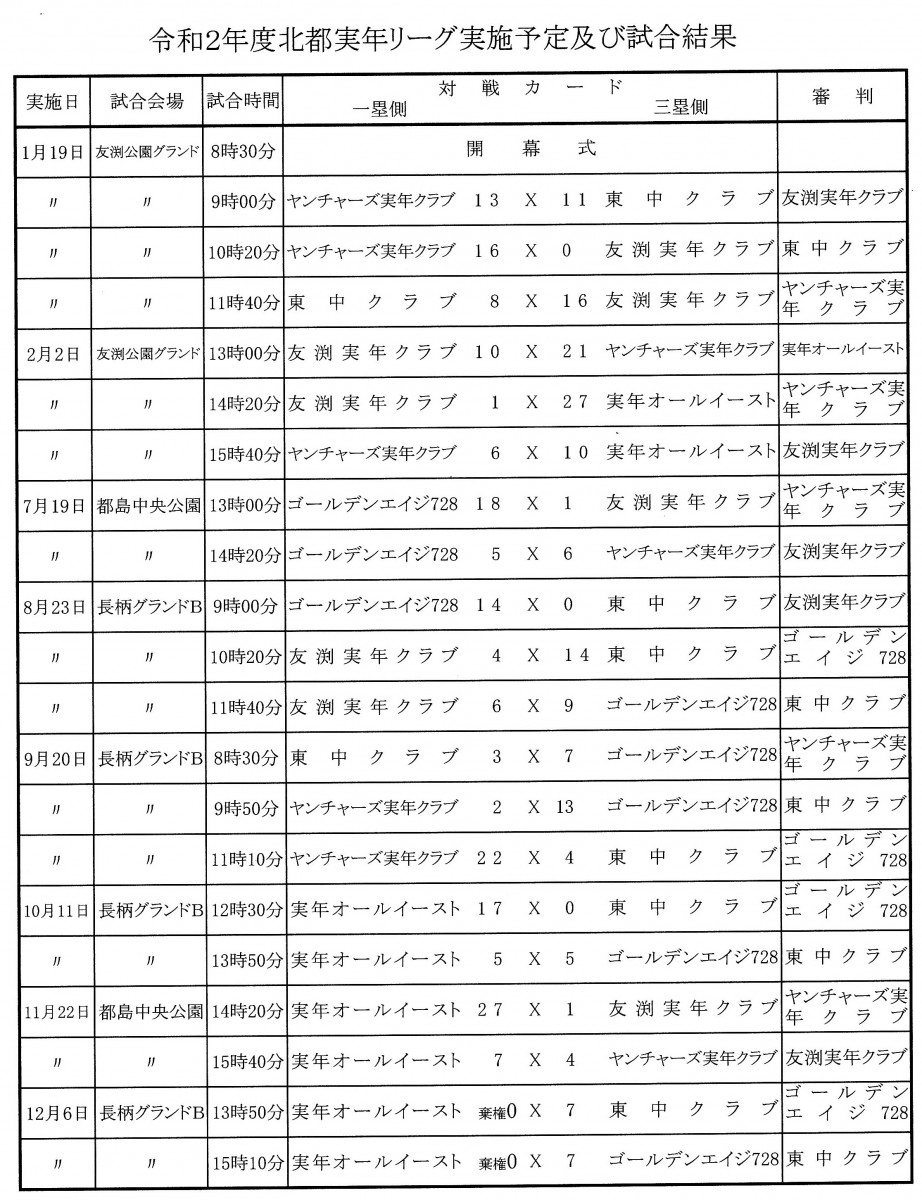 令和2年度北都実年リーグ実施予定及び試合結果
実施日 試合会場 試合時間 対戦カード 審判
一塁側 三塁側
1月19日 友渕公園グランド 8時30分 開幕式
〃 〃 9時00分 ヤンチャーズ実年クラブ 13 X 11 東中クラブ 友渕実年クラブ
〃 〃 10時20分 ヤンチャーズ実年クラブ 16 X 0 友渕実年クラブ 東中クラブ
〃 〃 11時40分 東中クラブ 8 X 16 友渕実年クラブ ヤンチャーズ実
年クラブ
2月2日 友渕公園グランド 13時00分 友渕実年クラブ 10 X 21 ヤンチャーズ実年クラブ 実年オールイースト
〃 〃 14時20分 友渕実年クラブ 1 X 27 実年オールイースト ヤンチャーズ実
年クラブ
〃 〃 15時40分 ヤンチャーズ実年クラブ 6 X 10 実年オールイースト 友渕実年クラブ
7月19日 都島中央公園 13時00分 ゴールデンエイジ728 18 X 1 友渕実年クラブ ヤンチャーズ実
年クラブ
〃 〃 14時20分 ゴールデンエイジ728 5 X 6 ヤンチャーズ実年クラブ 友渕実年クラブ
8月23日 長柄グランドB 9時00分 ゴールデンエイジ728 14 X 0 東中クラブ 友渕実年クラブ
〃 〃 10時20分 友渕実年クラブ 4 X 14 東中クラブ ゴールデン
エイジ728
〃 〃 11時40分 友渕実年クラブ 6 X 9 ゴールデンエイジ728 東中クラブ
9月20日 長柄グランドB 8時30分 東中クラブ 3 X 7 ゴールデンエイジ728 ヤンチャーズ実
年クラブ
〃 〃 9時50分 ヤンチャーズ実年クラブ 2 X 13 ゴールデンエイジ728 東中クラブ
〃 〃 11時10分 ヤンチャーズ実年クラブ 22 X 4 東中クラブ ゴールデン
エイジ728
10月11日 長柄グランドB 12時30分 実年オールイースト 17 X 0 東中クラブ ゴールデン
エイジ728
〃 〃 13時50分 実年オールイースト 5 X 5 ゴールデンエイジ728 東中クラブ
11月22日 都島中央公園 14時20分 実年オールイースト 27 X 1 友渕実年クラブ ヤンチャーズ実
年クラブ
〃 〃 15時40分 実年オールイースト 7 X 4 ヤンチャーズ実年クラブ 友渕実年クラブ
12月6日 長柄グランドB 13時50分 実年オールイースト 棄権0 X 7 東中クラブ ゴールデン
エイジ728
〃 〃 15時10分 実年オールイースト 棄権0 X 7 ゴールデンエイジ728 東中クラブ